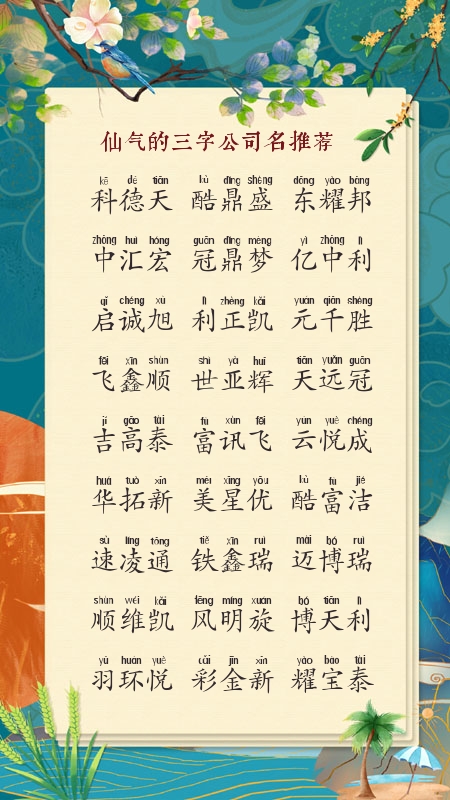 仙气的三字公司名推荐
kē dé tiān kù dǐng shèng dōng yào bāng
科德天 酷鼎盛 东耀邦
zhōng huì hóng guān dǐng mèng yì zhōng lì
中汇宏 冠鼎梦 亿中利
qǐ chéng xù lì zhèng kǎi yuán qiān shèng
启诚旭 利正凯 元千胜
fēi xīn shùn shì yà huī tiān yuǎn guān
飞鑫顺 世亚辉 天远冠
jí gāo tài fù xùn fēi yún yuè chéng
吉高泰 富讯飞 云悦成
huá tuò xīn měi xīng yōu kù fù jié
华拓新 美星优 酷富洁
sù líng tōng tiě xīn ruì mài bó ruì
速凌通 铁鑫瑞 迈博瑞
shùn wéi kǎi fēng míng xuán bó tiān lì
顺维凯 风明旋 博天利
yǔ huán yuè cǎi jīn xīn yào bǎo tài
羽环悦 彩金新 耀宝泰